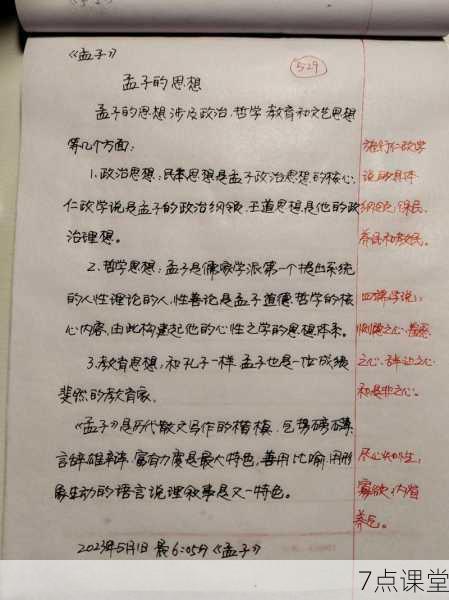 《孟子》
529
孟子的思想
孟子的思想涉及政治、哲学、教育和文艺思想
等几个方面:
1.政治思想:民本思想是孟子政治思想的核心,
仁政学说是孟子的政治纲领,王道思想是他的政
治理想。
2.哲学思想:孟子是儒家学派第一个提出系统
的人性理论的人,性善论是孟子道德哲学的核
心内容,由此构建起他的心性之学的思想体系。
3.教育思想:和孔子一样,孟子也是一位成绩
斐然的教育家。
《孟子》是历代散文写作的楷模,气势磅礴,
言辞雄辩,富有力度是最大特色,善用比喻,用形
象生动的语言说理叙事是又一特色。
2023年5月1日晨6:05分《孟子》
施行仁政学
说的具体
纲领,保民,
养民和教民。
四端学说:
恻隐之心、羞恶
之心、辞让之心
和是非之心。
尽心知性,
寡欲,内省
养气。
7点课堂